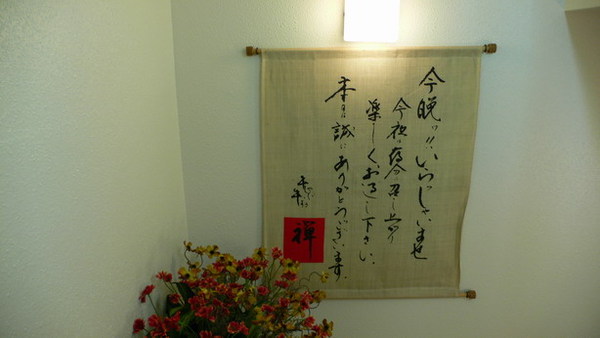 今晩は!!いらっしゃいませ
今夜は存分召し上り
楽しくお過し下さい。
本日誠にありがとうございます。
祥